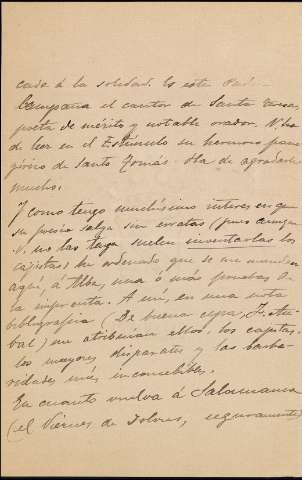 cada á la soledad. Es este Padre
Compañia el cantor de Santa Teresa,
poeta de mérito y notable orador. V. ha
de leer en el Estímulo su hermoso pane-
gírico de Santo Tomás. Ha de agradarle
mucho.
Y como tengo muchísimo interes en que
su poesía salga sin erratas (pues aunque
V. no las haga suelen inventarlas los
cajistas) he ordenado que se me manden
aquí, á Alba, una ó más pruebas de
la imprenta. A mí, en una nota
bibliográfica (De buena cepa,
bal) me atribuían ellos, los cajistas,
los mayores disparates y las barba-
ridades más inconcebibles.
En cuanto vuelva á Salamanca
(el Viernes de Dolores, seguramente)